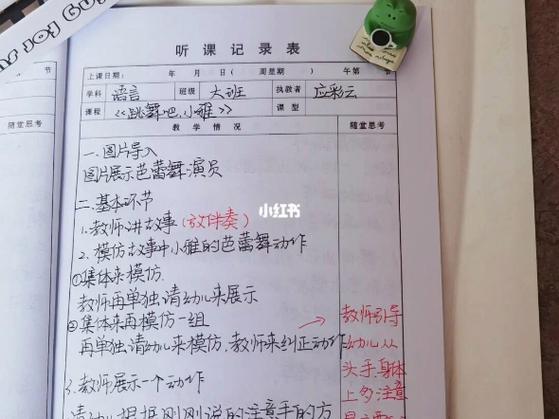 听课记录表
上课日期： 年 月 日（ 周星期 ）午第 节
学科 语言 班级 大班 执教者 应彩云
课程 《跳舞吧,小雅》 课型
教学情况 随堂思考
一.图片导入
图片展示芭蕾舞演员
二.基本环节
1.教师讲故事（放伴奏）
2.模仿故事中小雅的芭蕾舞动作
①集体来模仿.
教师再单独请幼儿来展示
②集体来再模仿一组
再单独请幼儿来模仿.教师来纠正动作
3.教师展示一个动作
请幼儿根据刚刚说的注意手的方
→ 教师引导
幼儿从
头.手.身体
上多注意
随堂思考
节
小红书